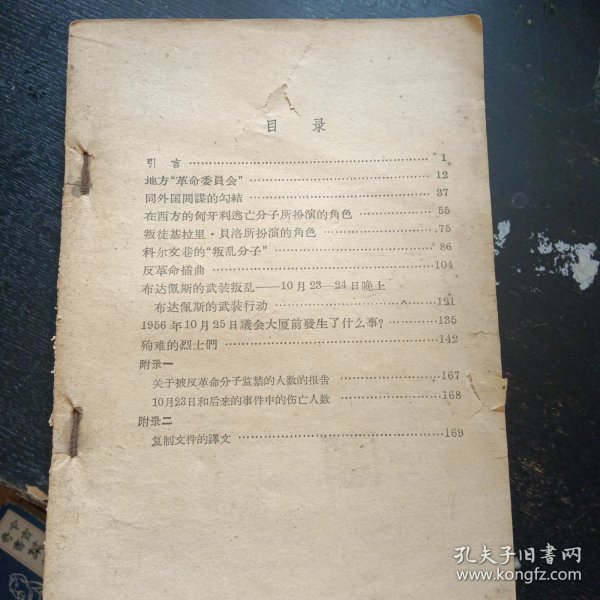 目录
引言 1
地方“革命委員会” 12
同外国間諜的勾結 37
在西方的匈牙利逃亡分子所扮演的角色 55
叛徒基拉里·貝洛所扮演的角色 75
科尔文巷的“叛乱分子” 86
反革命插曲 104
布达佩斯的武装叛乱——10月23—24日晚上
布达佩斯的武装行动 121
1956年10月25日議会大厦前發生了什么事? 135
殉难的烈士們 142
附录一
关于被反革命分子监禁的人数的报告 167
10月23日和后来的事件中的伤亡人数 168
附录二
复制文件的譯文 169
孔夫子旧书网
www.kongfz.com